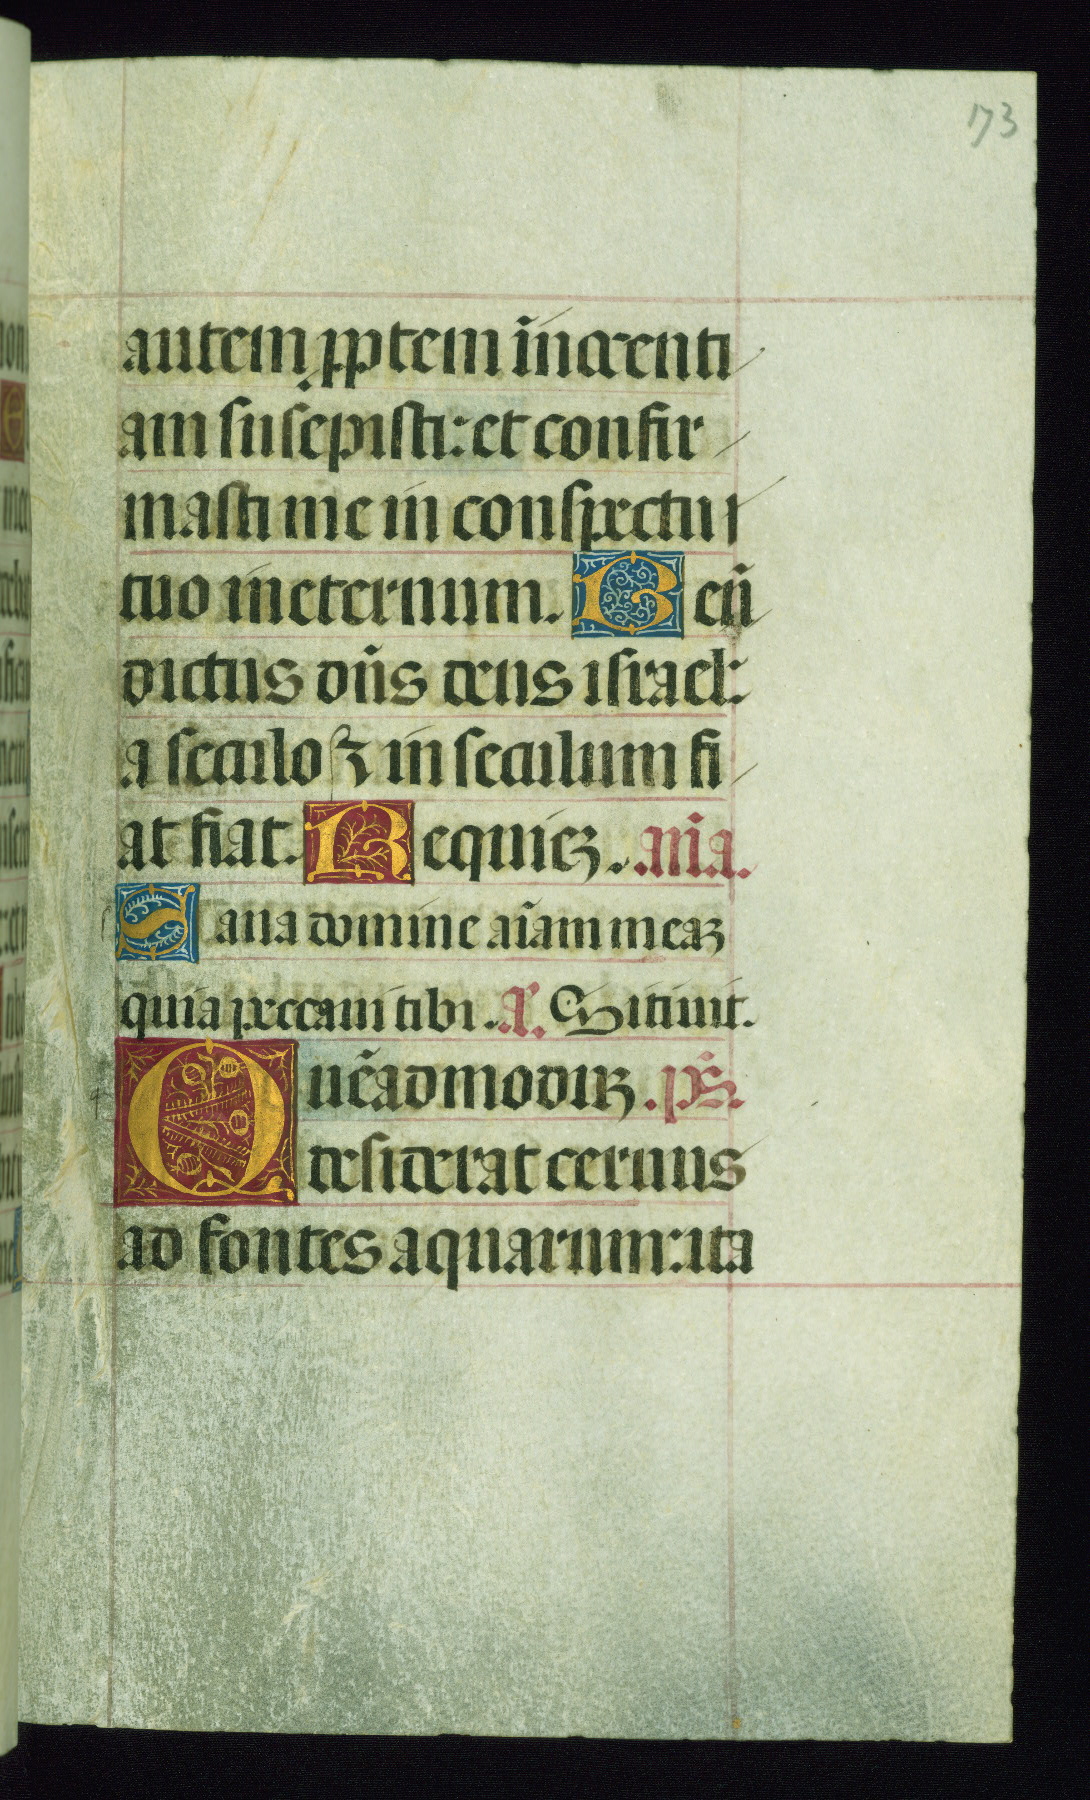 173
autem ꝓptem īnocenti
am suscepisti: et confir
masti me in conspectu
tuo in eternum. Ben̄
dictus dn̄s deus israel:
a seculoꝝ in seculum fi
at fiat. Requieȝ. an̄a.
Sana domine aīam meaȝ
quia peccavi tibi. a͞. Sitivit.
Quēadmoduȝ. ps̄.
desiderat cervus
ad fontes aquarum: ita